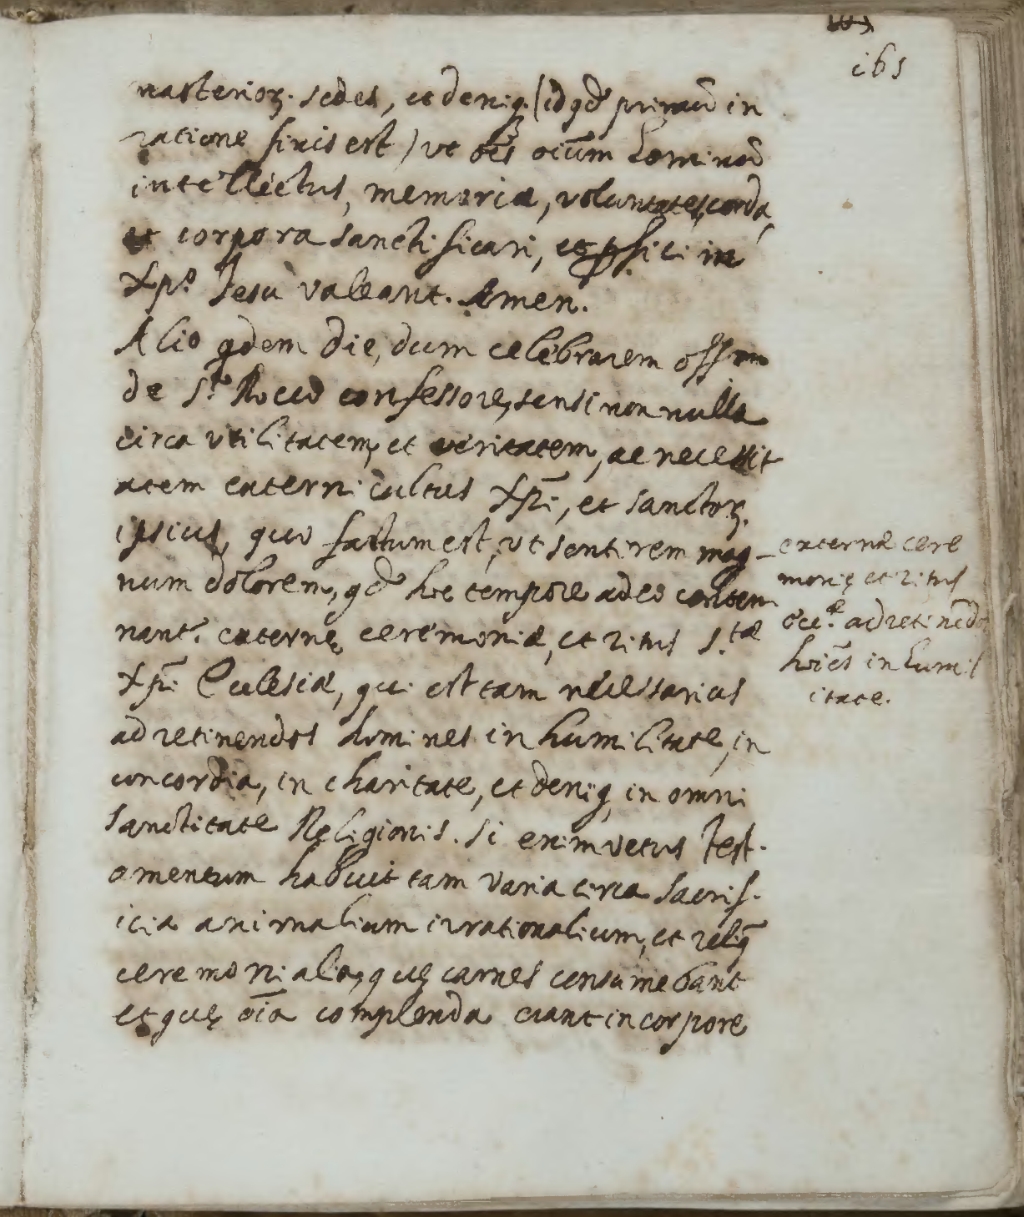 165
nasterioꝝ. sedes, et deniq. (id qd̃ primũ in
ratione finis est) ut oẽs oĩum hominũ
intellectus, memoriæ, voluntates, corda,
et corpora sanctificari, et ꝑfici in
Xp̃o Jesu valeant. Amen.
Alio qdem die, dum celebrarem offm
de S.to Rocco confessore, sensi non nulla
circa utilitatem, et veritatem, ac necessit
atem externi cultus Xp̃i, et sanctoꝝ.
ipsius, quo factum est, ut sentirem mag-
num dolorem, qd̃ hoc tempore adeo contem
nant.r externę ceremoniæ, et ritus S.tæ
Xp̃i Ecclesiæ, qui est tam necessarius
ad retinendos homines in humilitate, in
concordia, in charitate, et deniq, in omni
sanctitate Religionis. Si enim vetus Test-
amentum habuit tam varia circa sacrif-
icia animalium irrationalium, et reliq̃
ceremonialia, quę carnes consumebant
et quę oĩa complenda erant in corpore
externæ cere
monię et ritus
ad retinẽdos
hoĩẽs in humil
itate.